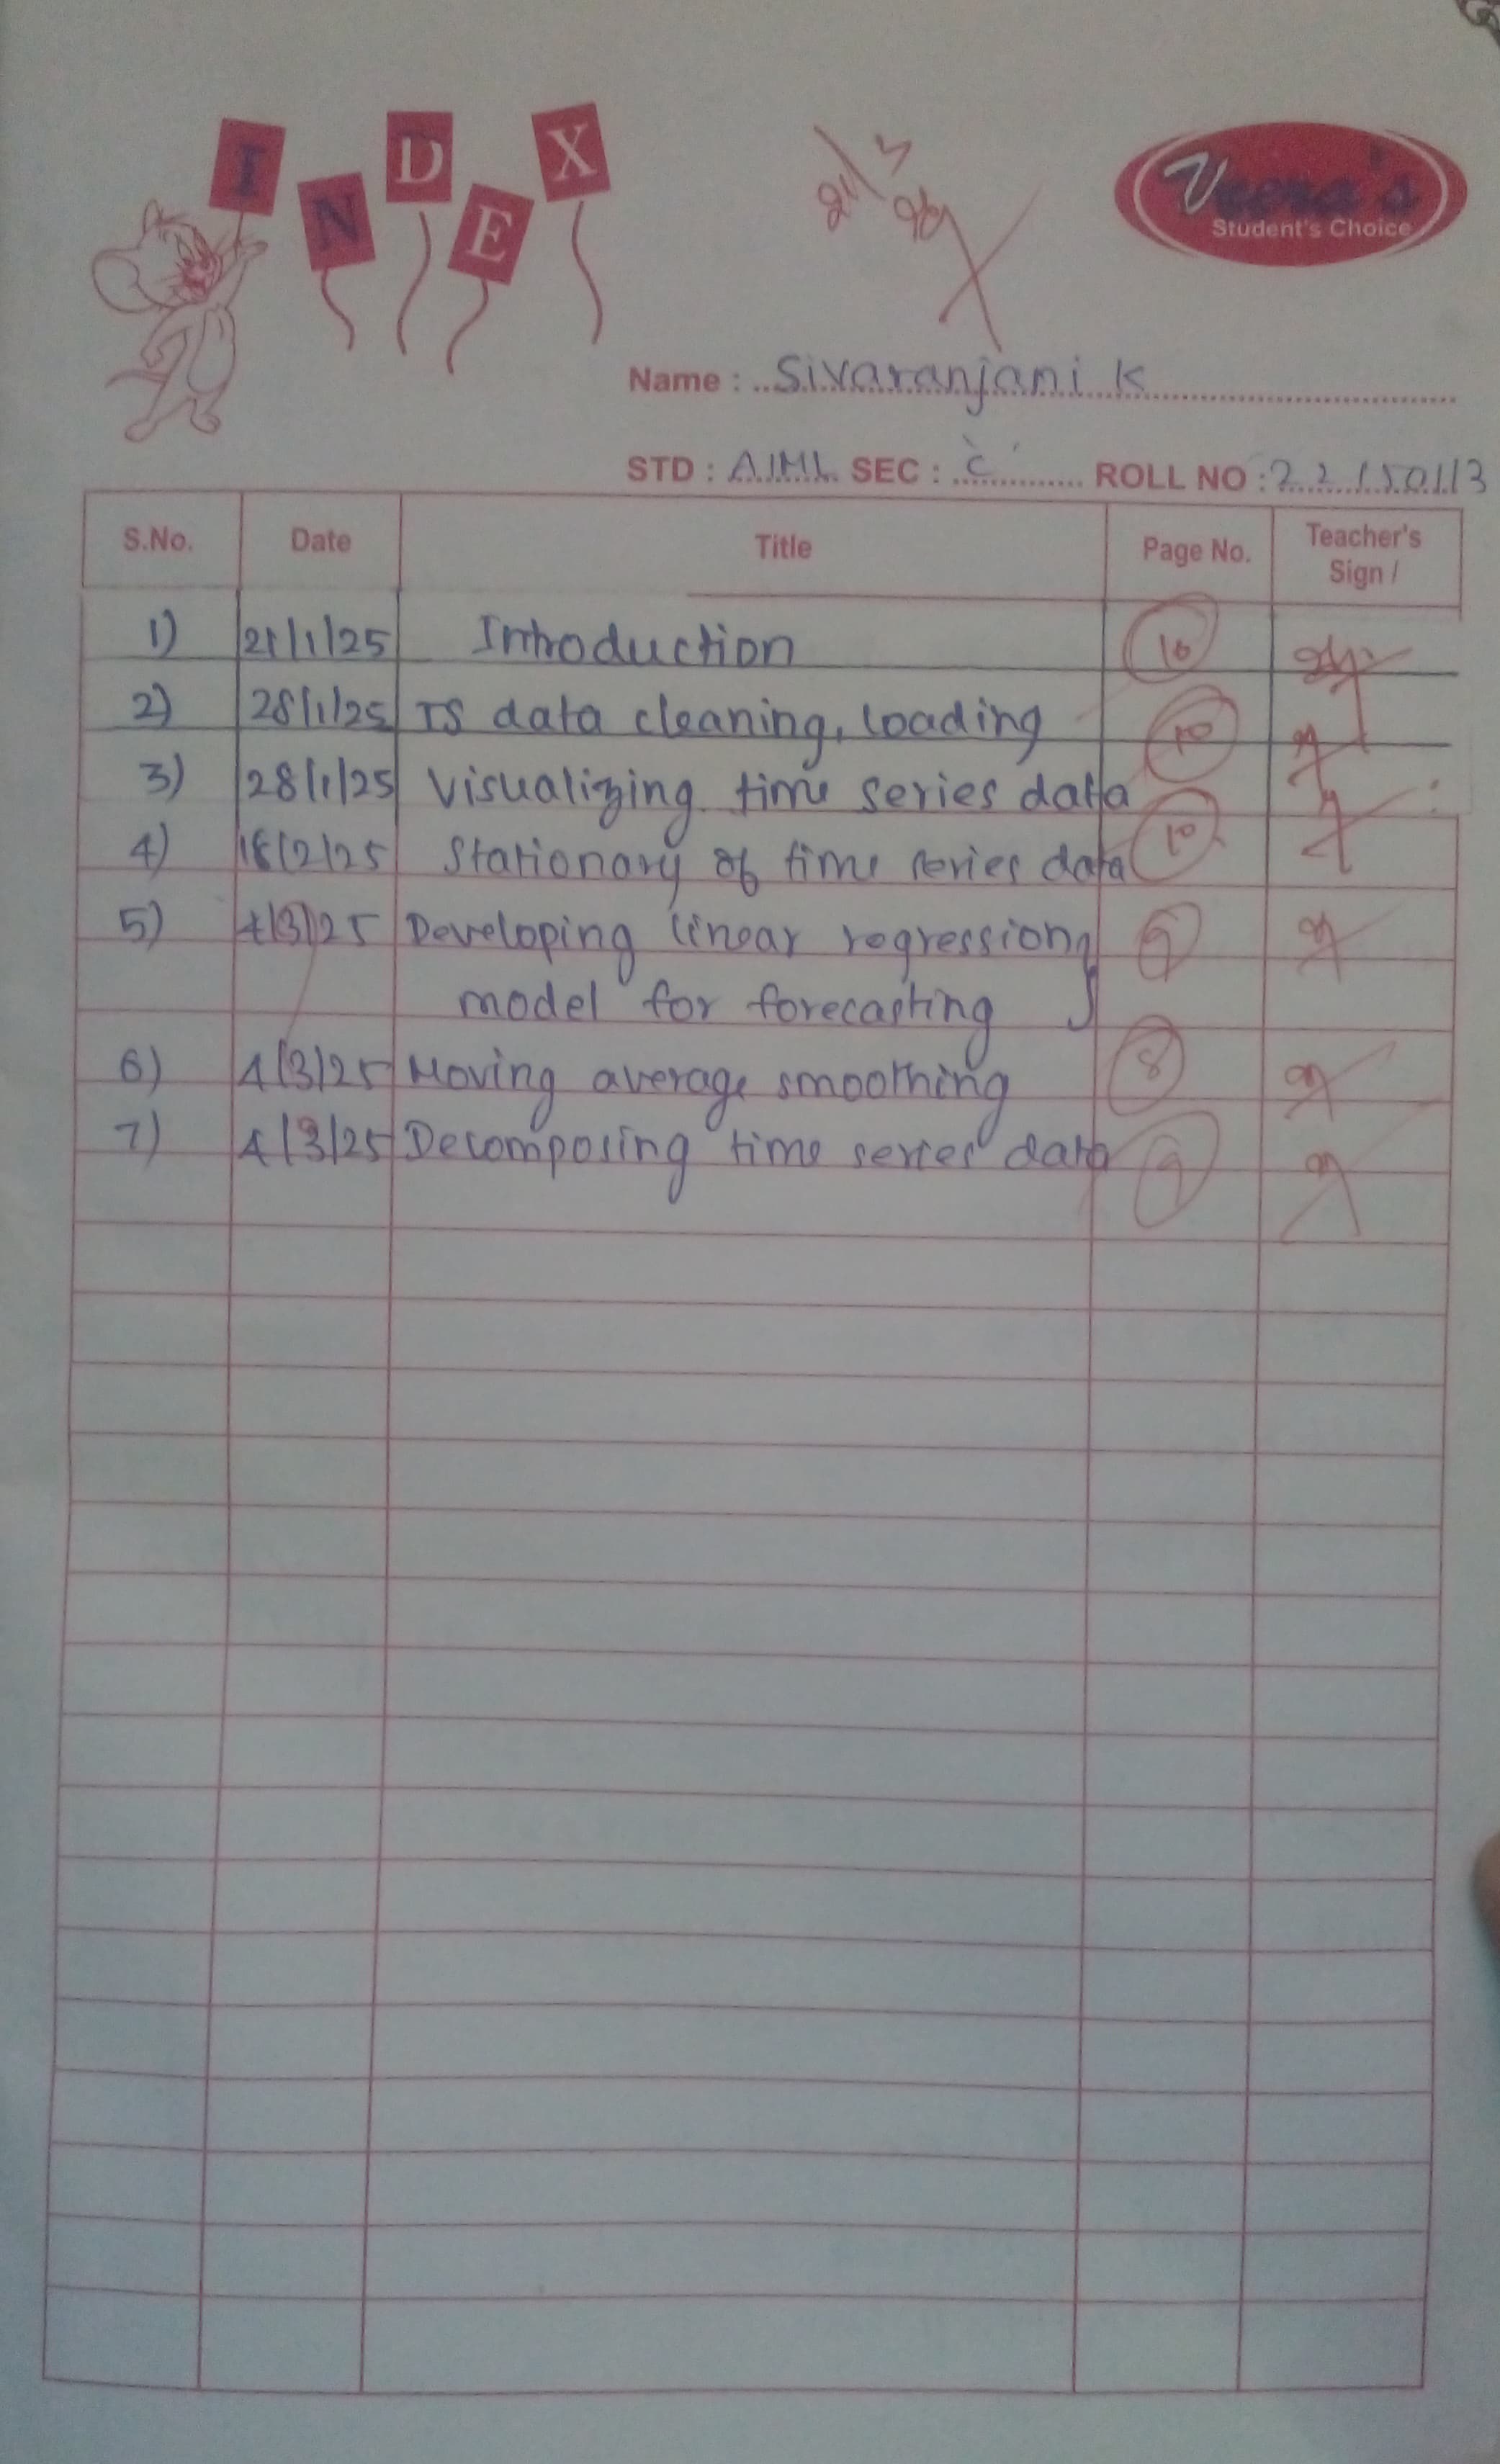 INDEX
Veera's
Student's Choice
Name : Sivaranjani K
STD : AIML SEC : 'C' ROLL NO : 221501113
S.No. Date Title Page No. Teacher's Sign /
1) 21/1/25 Introduction 10
2) 28/1/25 TS data cleaning, loading 10
3) 28/1/25 Visualizing time series data
4) 18/2/25 Stationary of time series data 10
5) 4/3/25 Developing linear regression 9
model for forecasting
6) 4/3/25 Moving average smoothing 8
7) 4/3/25 Decomposing time series data 9